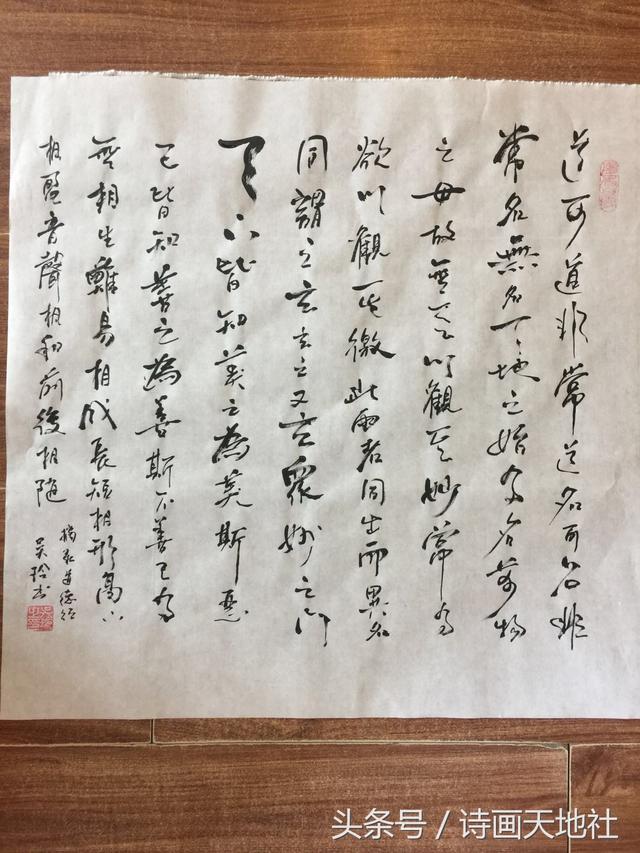 道可道非常道名可名非
常名無名天地之始有名萬物
之母故無欲以觀其妙常有
欲以觀其徼此兩者同出而異名
同謂之玄玄之又玄眾妙之門
天下皆知美之為美斯惡
已皆知善之為善斯不善已有
無相生難易相成長短相形高下
相盈音聲相和前後相随
摘取道德经
吴玲书
头条号／诗画天地社